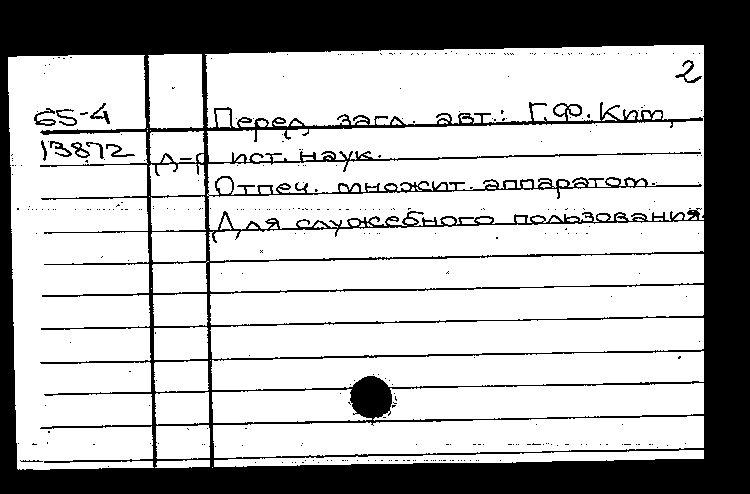 2
65-4 Перед загл. авт.: Г.Ф. Ким,
13872 д-р ист. наук.
Отпеч. множит. аппаратом.
Для служебного пользования.